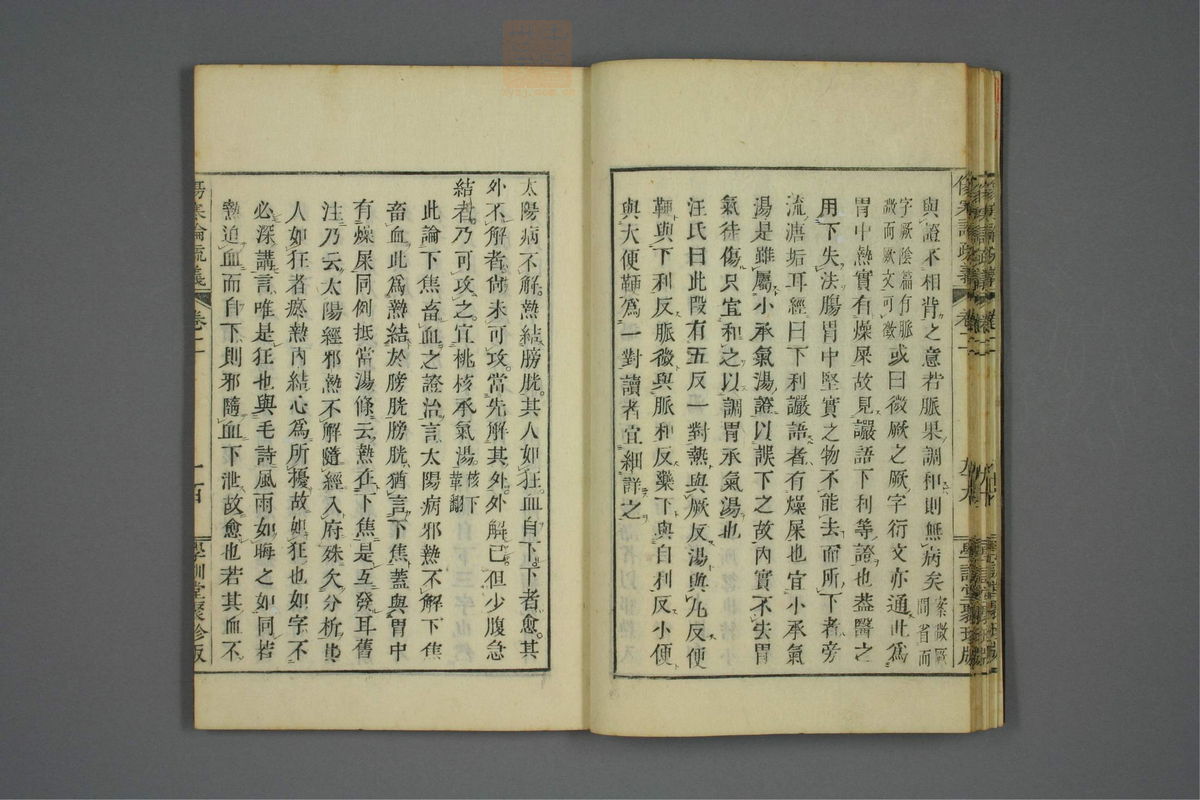 與證不相背之意若脈果調和則無病矣案微厥間省而
字厥陰篇有脈微而厥文可徵或曰微厥之厥字衍文亦通此爲
胃中熱實有燥屎故見讝語下利等證也葢醫之
用下失法腸胃中堅實之物不能去而所下者旁
流溏垢耳經曰下利讝語者有燥屎也宜小承氣
湯是雖屬小承氣湯證以誤下之故內實不失胃
氣徒傷只宜和之以調胃承氣湯也
汪氏曰此段有五反一對熱與厥反湯與丸反便
鞕與下利反脈微與脈和反藥下與自利反小便
與大便鞕爲一對讀者宜細詳之
太陽病不解熱結膀胱其人如狂血自下下者愈其
外不解者尚未可攻當先解其外外解已但少腹急
結者乃可攻之宜桃核承氣湯核下葦翦
此論下焦畜血之證治言太陽病邪熱不解下焦
畜血此爲熱結於膀胱膀胱猶言下焦蓋與胃中
有燥屎同例抵當湯條云熱在下焦是互發耳舊
注乃云太陽經邪熱不解隨經入府殊欠分析其
人如狂者瘀熱內結心爲所擾故如狂也如字不
必深講言唯是狂也與毛詩風雨如晦之如同若
熱迫血而自下則邪隨血下泄故愈也若其血不
傷寒論疏義
卷二
一百
學訓堂聚珍版